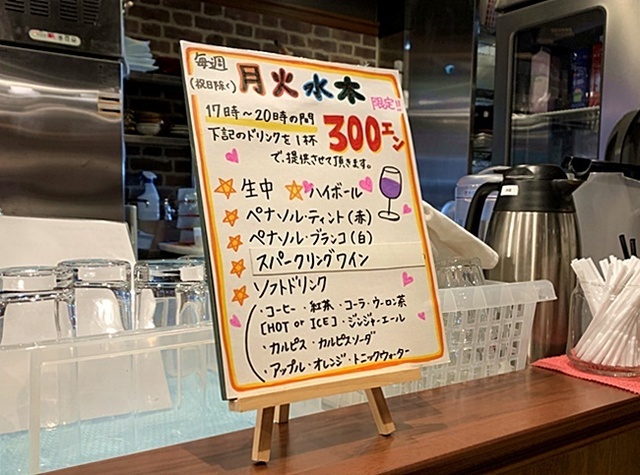 毎週
(祝日除く) 月火水木
限定!!
17時〜20時の間
下記のドリンクを1杯 300エン
で、提供させて頂きます。
生中 ハイボール
ペナソル・ティント(赤)
ペナソル・ブランコ(白)
スパークリングワイン
ソフトドリンク
・コーヒー・紅茶・コーラ・ウーロン茶
[HOT or ICE]・ジンジャーエール
・カルピス・カルピスソーダ
・アップル・オレンジ・トニックウォーター